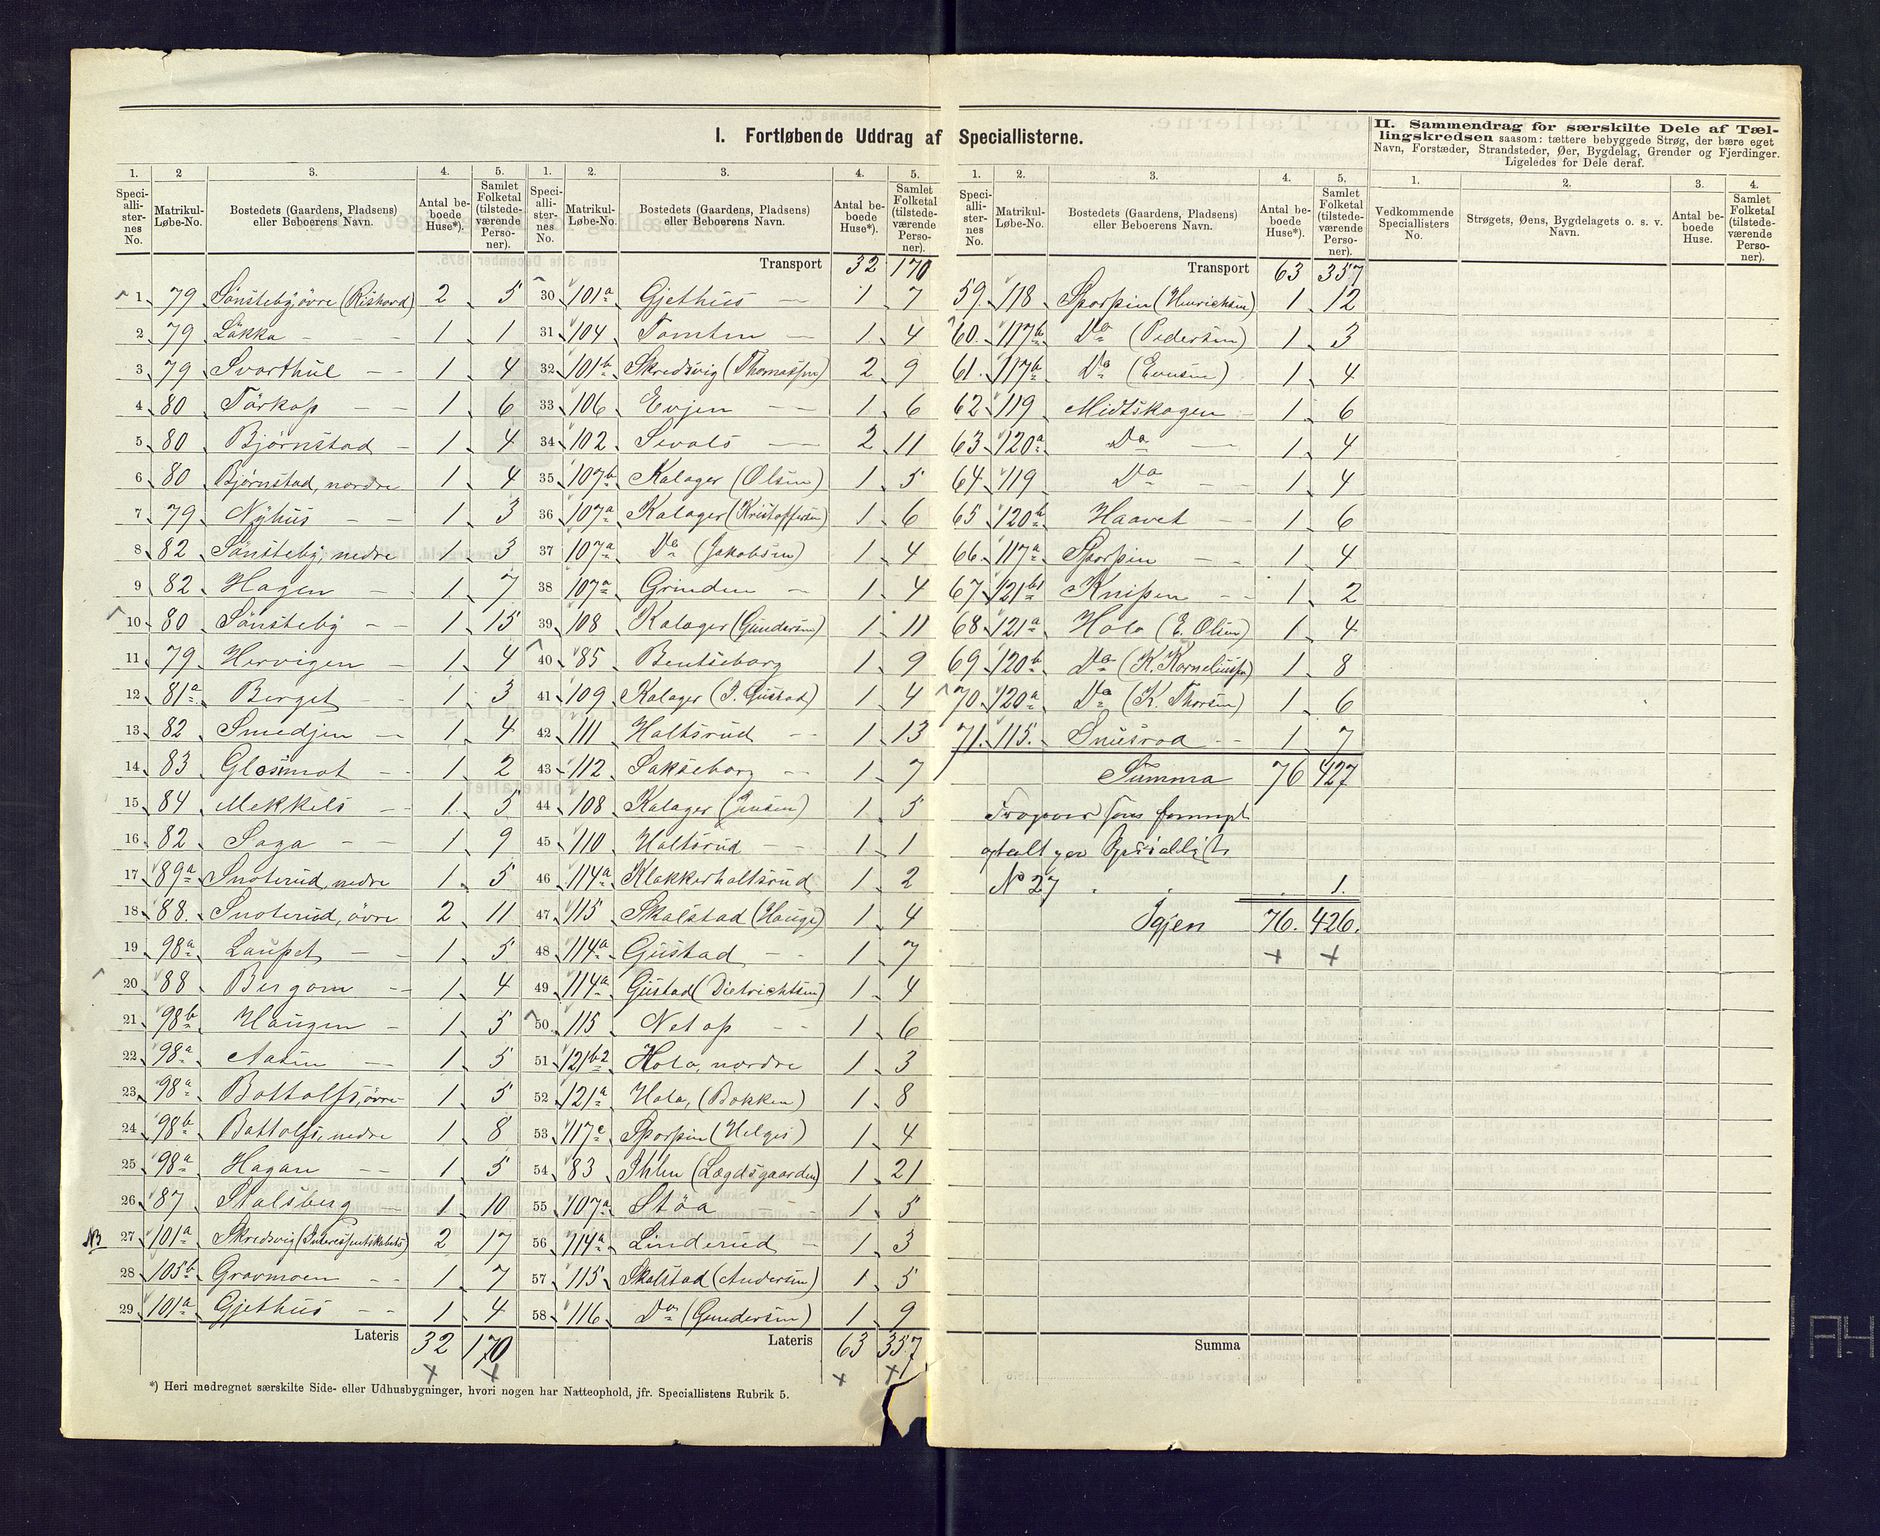 I. Fortløbende Uddrag af Speciallisterne.
II. Sammendrag for særskilte Dele af Tællingskredsen saasom: tættere bebyggede Strøg, der bære eget Navn, Forstæder, Strandsteder, Øer, Bygdelag, Grender og Fjerdinger. Ligeledes for Dele deraf.
1. 2 3. 4. 5.
Speciallisternes No. Matrikul-Løbe-No. Bostedets (Gaardens, Pladsens) eller Beboerens Navn. Antal beboede Huse*). Samlet Folketal (tilstedeværende Personer).
1 79 Sønsteby øvre (Rishovd) 2 5
2 79 Løkka 1 1
3 79 Svarthul 1 4
4 80 Törkop 1 6
5 80 Bjørnstad 1 4
6 80 Bjørnstad, nordre 1 4
7 79 Nyhus 1 3
8 82 Sønsteby, nedre 1 3
9 82 Hagen 1 7
10 80 Sønsteby 1 15
11 79 Hervigen 1 4
12 81a Berget 1 3
13 82 Smedjen 1 4
14 83 Glosimot 1 2
15 84 Mekkels 1 5
16 82 Saga 1 9
17 89a Snoterud, nedre 1 5
18 88. Snoterud, övre 2 11
19 98a Laupet 1 5
20 88 Bergom 1 4
21 98b Haugen 1 5
22 98a Aasen 1 5
23 98a Bottolfs, övre 1 5
24 98b Bottolfs, nedre 1 8
25 98a Hagan 1 5
26 87 Stalsberg 1 10
NB 27 101a Skredsvig (Interessentskabets) 2 17
28 105b Gravmoen 1 7
29 101a Gjethus 1 4
Lateris 32 170
*) Heri medregnet særskilte Side- eller Udhusbygninger, hvori nogen har Natteophold, jfr. Speciallistens Rubrik 5.
1. 2. 3. 4. 5.
Speciallisternes No. Matrikul-Løbe-No. Bostedets (Gaardens, Pladsens) eller Beboerens Navn. Antal beboede Huse*). Samlet Folketal (tilstedeværende Personer).
Transport 32 170
30 101a Gjethus 1 7
31 104 Tomten 1 4
32 101b Skredsvig (Thomassen) 2 9
33 106 Evjen 1 6
34 102 Sevals 2 11
35 107b Kalager (Olsen) 1 5
36 107a Kalager (Kristoffersen) 1 6
37 107a Do (Jakobsen) 1 4
38 107a Grinden 1 4
39 108 Kalager (Gundersen) 1 11
40 85 Bentseborg 1 9
41 109 Kalager (J. Gustad) 1 4
42 111 Holtsrud 1 13
43 112 Sakseborg 1 7
44 108 Kalager (Jensen) 1 5
45 110 Holtsrud 1 1
46 114a Klakkerholtsrud 1 2
47 115 Skalstad (Hauge) 1 4
48 114a Gustad 1 7
49 114a Gustad (Dietrichsen) 1 4
50 115 Netop 1 6
51 121b2 Hola, nordre 1 3
52 121a Hola, (Bakken) 1 8
53 117c Sporpin (Helges) 1 4
54 83 Ihlen (Lægdsgaarden) 1 21
55 107a Stöa 1 5
56 114a Linderud 1 3
57 115 Skalstad (Andersen) 1 5
58 116 Do (Gundersen) 1 9
Lateris 63 357
1. 2. 3. 4. 5.
Speciallisternes No. Matrikul-Løbe-No. Bostedets (Gaardens, Pladsens) eller Beboerens Navn. Antal beboede Huse*). Samlet Folketal (tilstedeværende Personer).
Transport 63 357
59. 118 Sporpin (Henriksen) 1 12
60. 117b Do (Pedersen) 1 3
61. 117b Do (Evensen) 1 4
62 119 Midtskogen 1 6
63 120a Do 1 4
64 119 Do 1 4
65 120b Haavet 1 6
66 117a Sporpin 1 4
67 121b1 Knipen 1 2
68 121a Hola (E. Olsen) 1 4
69 120b Do (K. Korneliussen) 1 8
70. 120a Do (K. Thorsen) 1 6
71. 115. Snusrod 1 7
Summa 76 427
opталt paa Speciallist
No 27 1.
Igjen 76. 426.
Summa
1. 2. 3. 4.
Vedkommende Speciallisters No. Strøgets, Øens, Bygdelagets o. s. v. Navn. Antal beboede Huse. Samlet Folketal (tilstedeværende Personer).